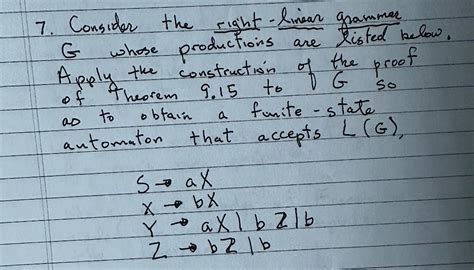 7. Consider the right-linear grammar
G whose productions are listed below.
Apply the construction of the proof
of Theorem 9.15 to G so
as to obtain a funite-state
automaton that accepts L(G),
S → aX
X → bX
Y → aX | bZ | b
Z → bZ | b